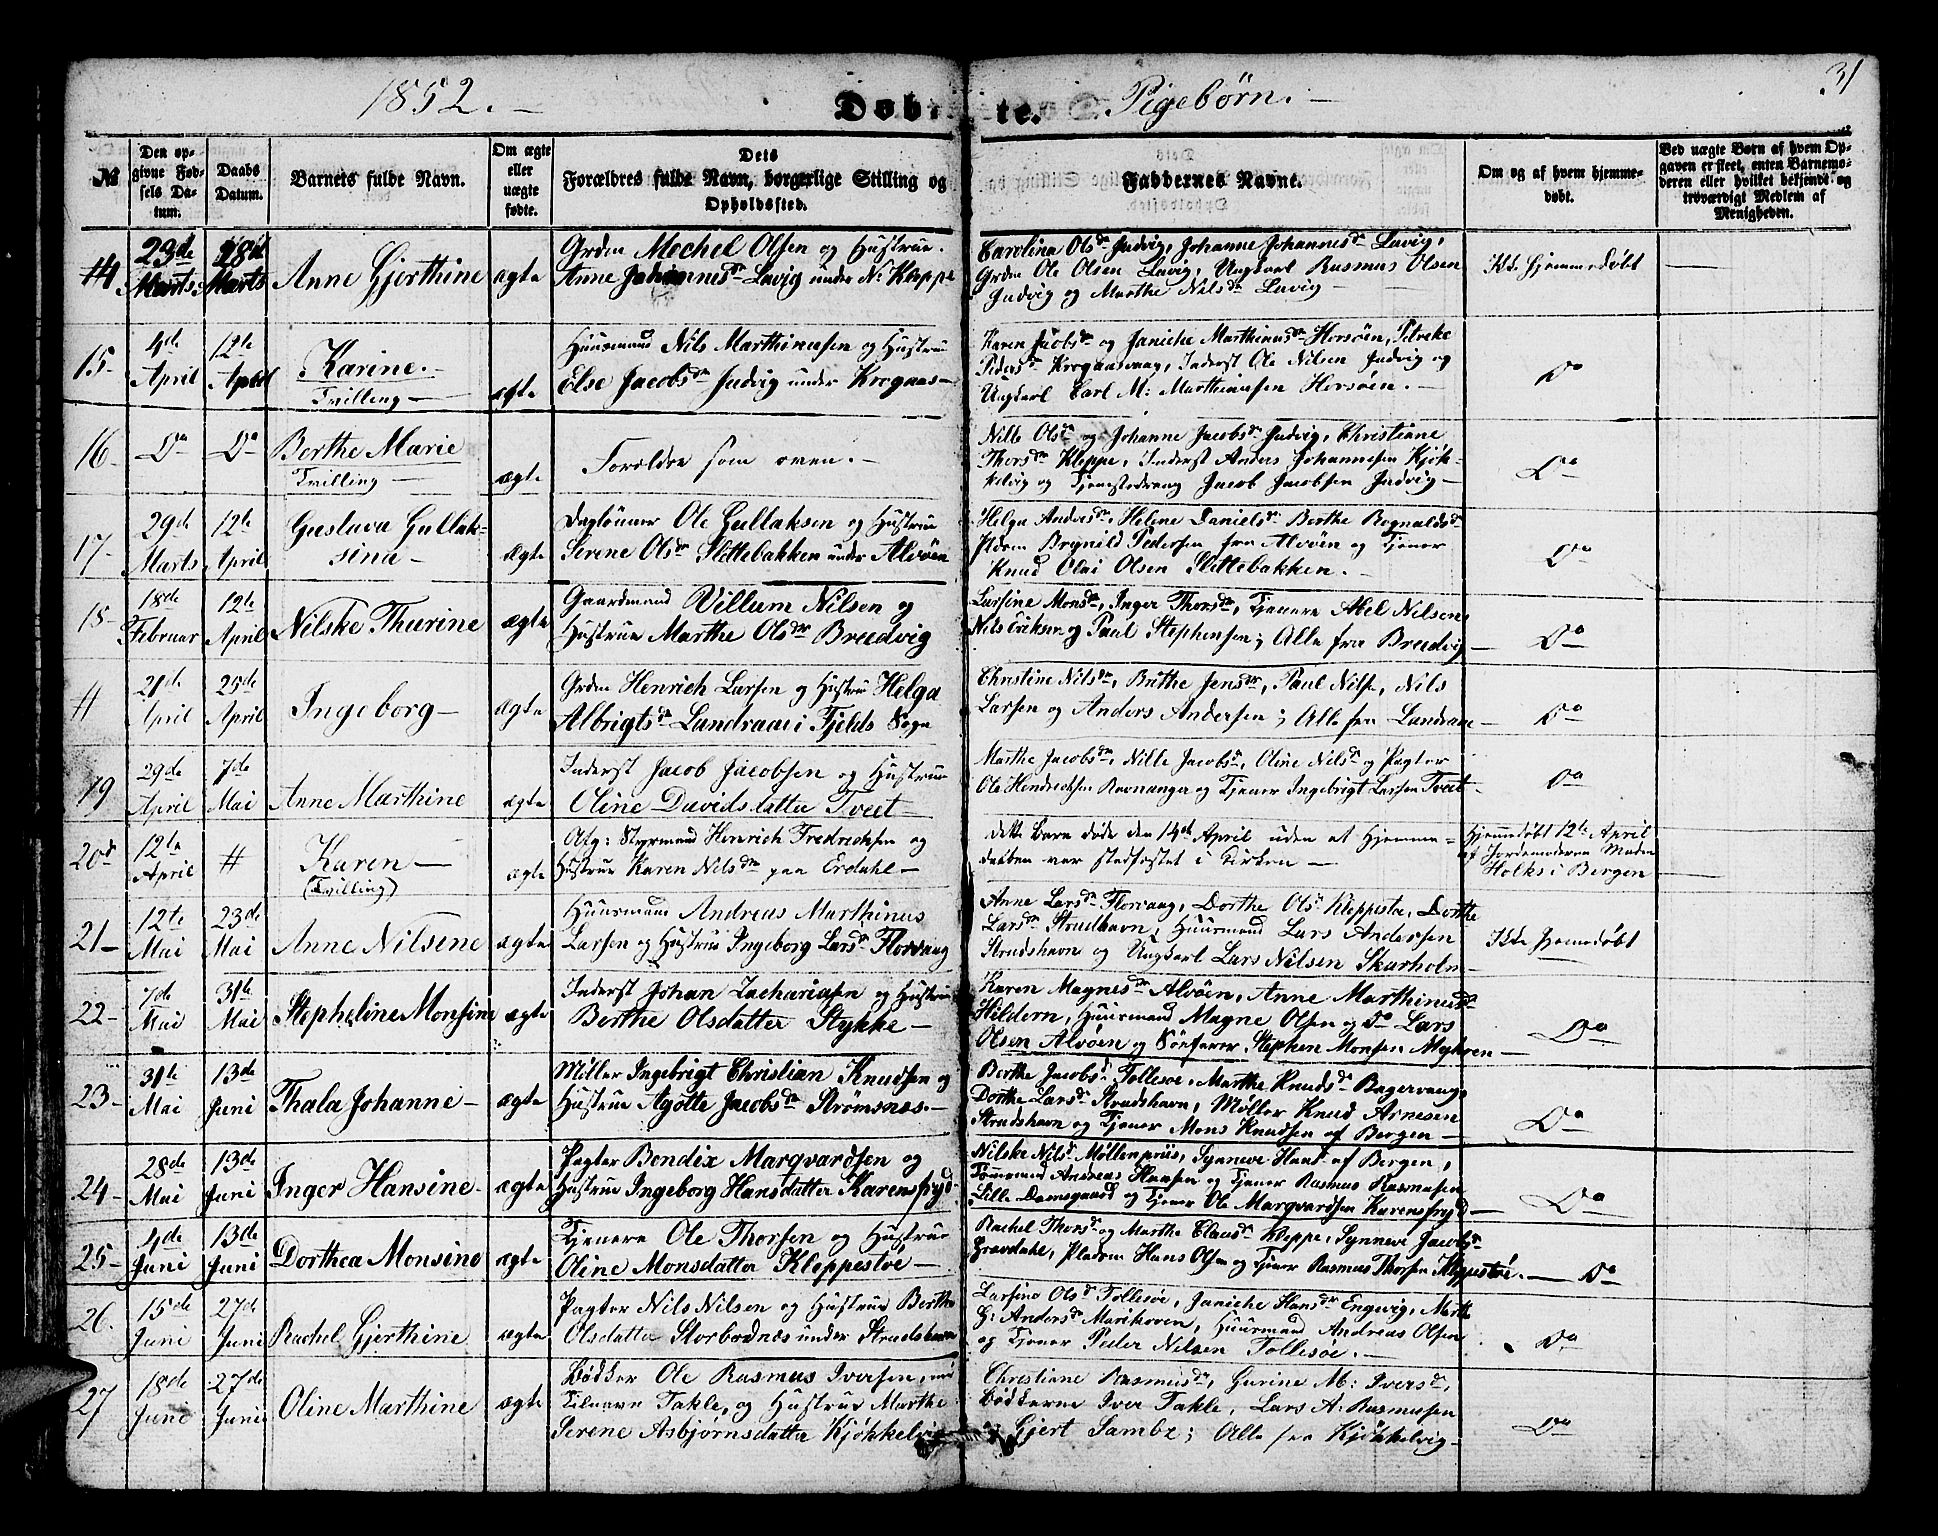 1852. Døbte. Pigebørn. 31
№ Den opgivne Fødsels Datum. Daabs Datum. Barnets fulde Navn. Om ægte eller uægte fødte. Dets Forældres fulde Navn, borgerlige Stilling og Opholdssted. Faddernes Navne. Om og af hvem hjemmedøbt. Ved uægte Børn af hvem Opgaven er skeet, enten Barnemoderen eller hvilket bekjendt og troværdigt Medlem af Menigheden.
14 23de Marts 28de Marts Anne Gjerthine ægte
Grdm Mechel Olsen og Hustrue
Anne Johannesdr Lavig under № Kleppe
Carolina Olsdr Judvig, Johanne Johannesdr Lavig,
Grdm Ole Olsen Lavig, Ungkarl Rasmus Olsen
Judvig og Marthe Nilsdr Lavig
Ikke hjemmedøbt
15 4de April 12te April Karine. Tvilling ægte
Huusmand Nils Marthinussen og Hustrue
Else Jacobsdr Judvig under Krogaas
Karen Jacobsdr og Janiche Marthinusdr Horsøen,
Pedersdr Krogaasvaag, Inderst Ole Nilsen Judvig og
Ungkarl Carl M: Marthinussen Horsøen.
Do
16 Do Do Berthe Marie Tvilling ægte
Forældre som oven.
Nille Olsdr og Johanne Jacobsdr Judvig, Christiane
Thorsdr Kleppe, Inderst Anders Johannesen Kjøk-
kelvig og Tjenestedreng Jacob Jacobsen Judvig
Do
17 29de Marts 12te April Gustava Gullaksina ægte
Daglønner Ole Gullaksen og Hustrue
Serene Olsdr Slettebakken under Alvøen
Helga Andersdr, Helene Danielsdr Berthe Regnaldsdr
Pladsm Brynild Pedersen fra Alvøen og Tjener
Knud Olai Olsen Slettebakken.
Do
18 18de Februar 12te April Nilske Thurine ægte
Gaardmand Villum Nilsen og
Hustrue Marthe Olsdr Breedvig
Larsine Monsdr, Inger Thorsdr, Tjenere Abel Nilsen,
Nils Eriksen og Paul Stephensen; Alle fra Breedvig
Do
# 21de April 25de April Ingeborg ægte
Grdm Henrich Larsen og Hustrue Helga
Albrigtsdr Landraae i Fjelds Sogn
Christine Nilsdr, Brithe Jensdr, Paul Nilse, Nils
Larsen og Anders Andersen; Alle fra Landraae
Do
19 29de April 7de Mai Anne Marthine ægte
Inderst Jacob Jacobsen og Hustrue
Oline Davidsdatter Tveit
Marthe Jacobsdr, Nille Jacobsdr, Oline Nilsdr og Pagter
Ole Hendrichsen Ravnanger og Tjener Ingebrigt Larsen Tveit
Do
20 12te April # Karen (Tvilling) ægte
Afg: Styrmand Henrich Fredrichsen og
Hustrue Karen Nilsdr paa Erdahl
Dette Barn døde den 14de April uden at Hjemme-
daaben var stadfæstet i Kirken
Hjemmedøbt 12te April
af Jordemoderen Madm
Holks i Bergen
21 12te Mai 23de Mai Anne Nilsene ægte
Huusmand Andreas Marthinus
Larsen og Hustrue Ingeborg Larsdr Florvaag
Anne Larsdr Florvaag, Dorthe Olsdr Kleppestøe, Dorthe
Larsdr Strudshavn, Huusmand Lars Andersen
Strudshavn og Ungkarl Lars Nilsen Skarholm
Ikke hjemmedøbt
22 7de Mai 31te Mai Stepheline Monsine ægte
Inderst Johan Zachariasen og Hustrue
Berthe Olsdatter Stykke
Karen Magnesdr Alvøen, Anne Marthinusdr
Hildern, Huusmand Magne Olsen og Do Lars
Olsen Alvøen og Søefarer Stephen Monsen
Do
23 31te Mai 13de Juni Thala Johanne ægte
Møller Ingebrigt Christian Knudsen og
Hustrue Agotte Jacobsdr Strømsnæs.
Berthe Jacobsdr Follesøe, Marthe Knudsdr Bagervaag,
Dorthe Larsdr Strudshavn, Møller Knud Arnesen
Strudshavn og Tjener Mons Knudsen af Bergen
Do
24 28de Mai 13de Juni Inger Hansine ægte
Pagter Bendix Marqvardsen og
Hustrue Ingeborg Hansdatter Karensfryd
Nilske Nilsdr Møllenpriis, Synneve af Bergen,
Tømmermand Andreas Hansen og Tjener Rasmus Rasmusen
Lille Damsgaard og Tjener Ole Marqvardsen Karensfryd
Do
25 4de Juni 13de Juni Dorthea Monsine ægte
Tjener Ole Thorsen og Hustrue
Oline Monsdatter Kleppestøe
Rachel Thorsdr og Marthe Clausdr Kleppe, Synneve Jacobsdr
Gravdahl, Pladsm Hans Olsen og Tjener Rasmus Thorsen Kleppestøe.
Do
26. 15de Juni 27de Juni Rachel Gjerthine ægte
Pagter Nils Nilsen og Hustrue Berthe
Olsdatter Storbodnæs under Strudshavn
Larsine Olsdr Follesøe, Janiche Hansdr Engevig, Marthe
G: Andersdr Marikoven, Huusmand Andreas Olsen
og Tjener Peder Nilsen Follesøe.
Do
27 18de Juni 27de Juni Oline Marthine ægte
Bødker Ole Rasmus Iversen, med
Tilnavn Takle, og Hustrue Marthe
Serene Asbjørnsdatter Kjøkkelvig
Christiane Rasmusdr, Gurine M: Iversdr,
Bødkerne Iver Takle, Lars A: Rasmusen
og Gjert Sambe; Alle fra Kjøkkelvig
Do